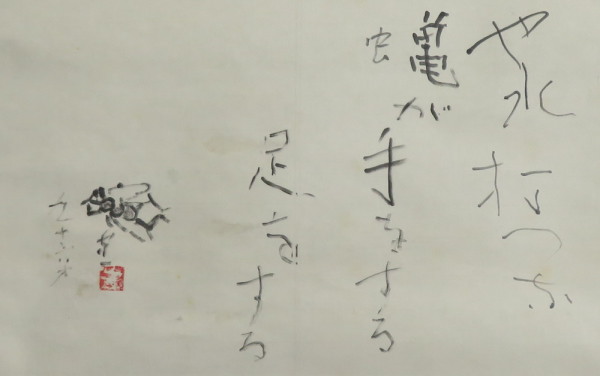 やれ打つな
蠅が手をする
足をする
九十六才